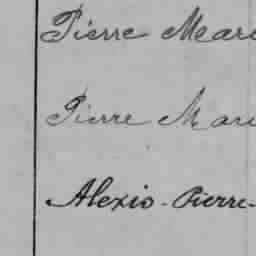 Pierre Mare
Pierre Mari
Alexis-Pierre-